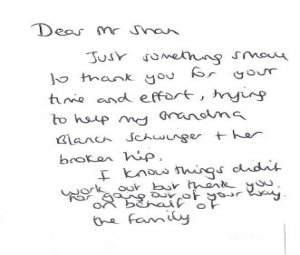 Dear Mr Shah
Just something small
to thank you for your
time and effort, trying
to help my Grandma
Blanch Schwinger + her
broken hip.
I know things didn't
work out but thank you
for going out of your way.
on behalf of
the family